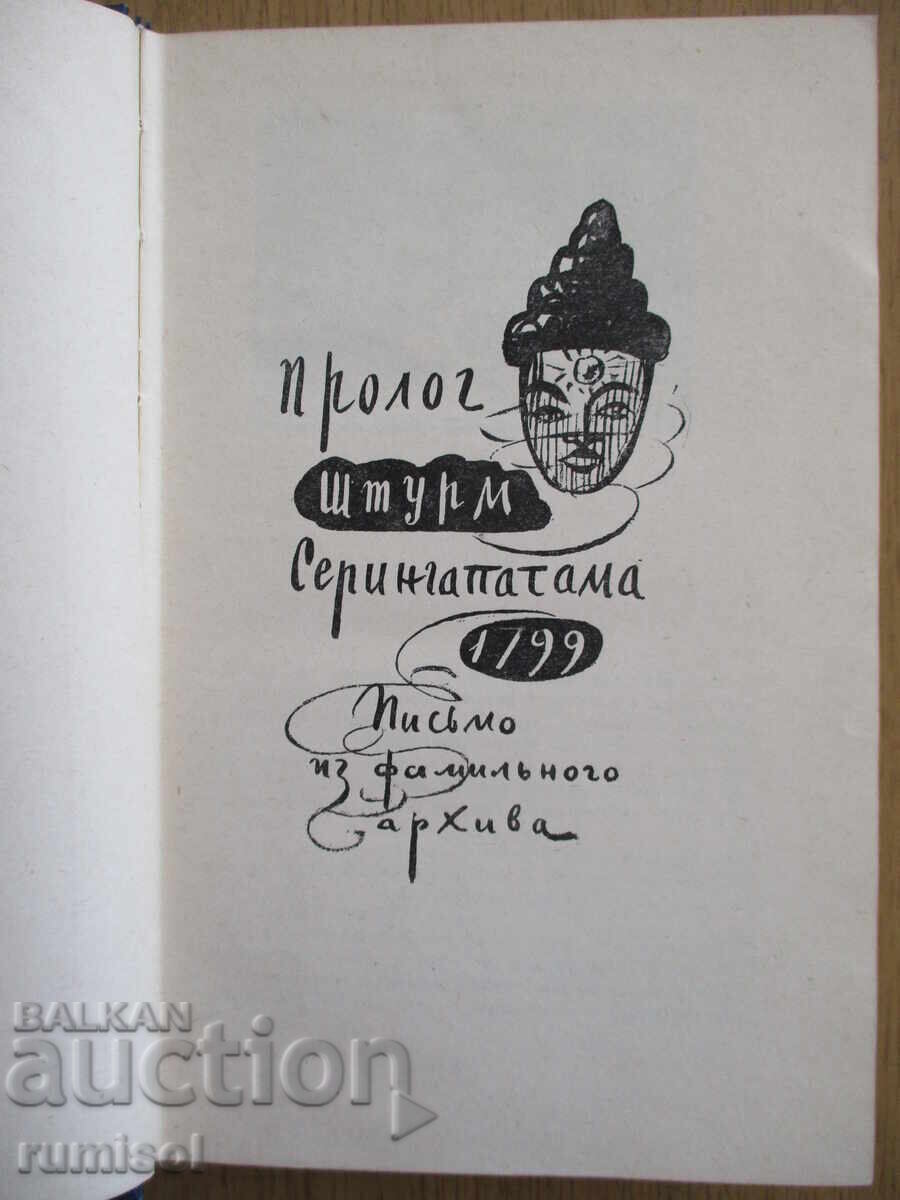 Пролог
Штурм
Серингапатама
1799
Письмо
из фамильного
архива
BALKAN
auction
rumisol